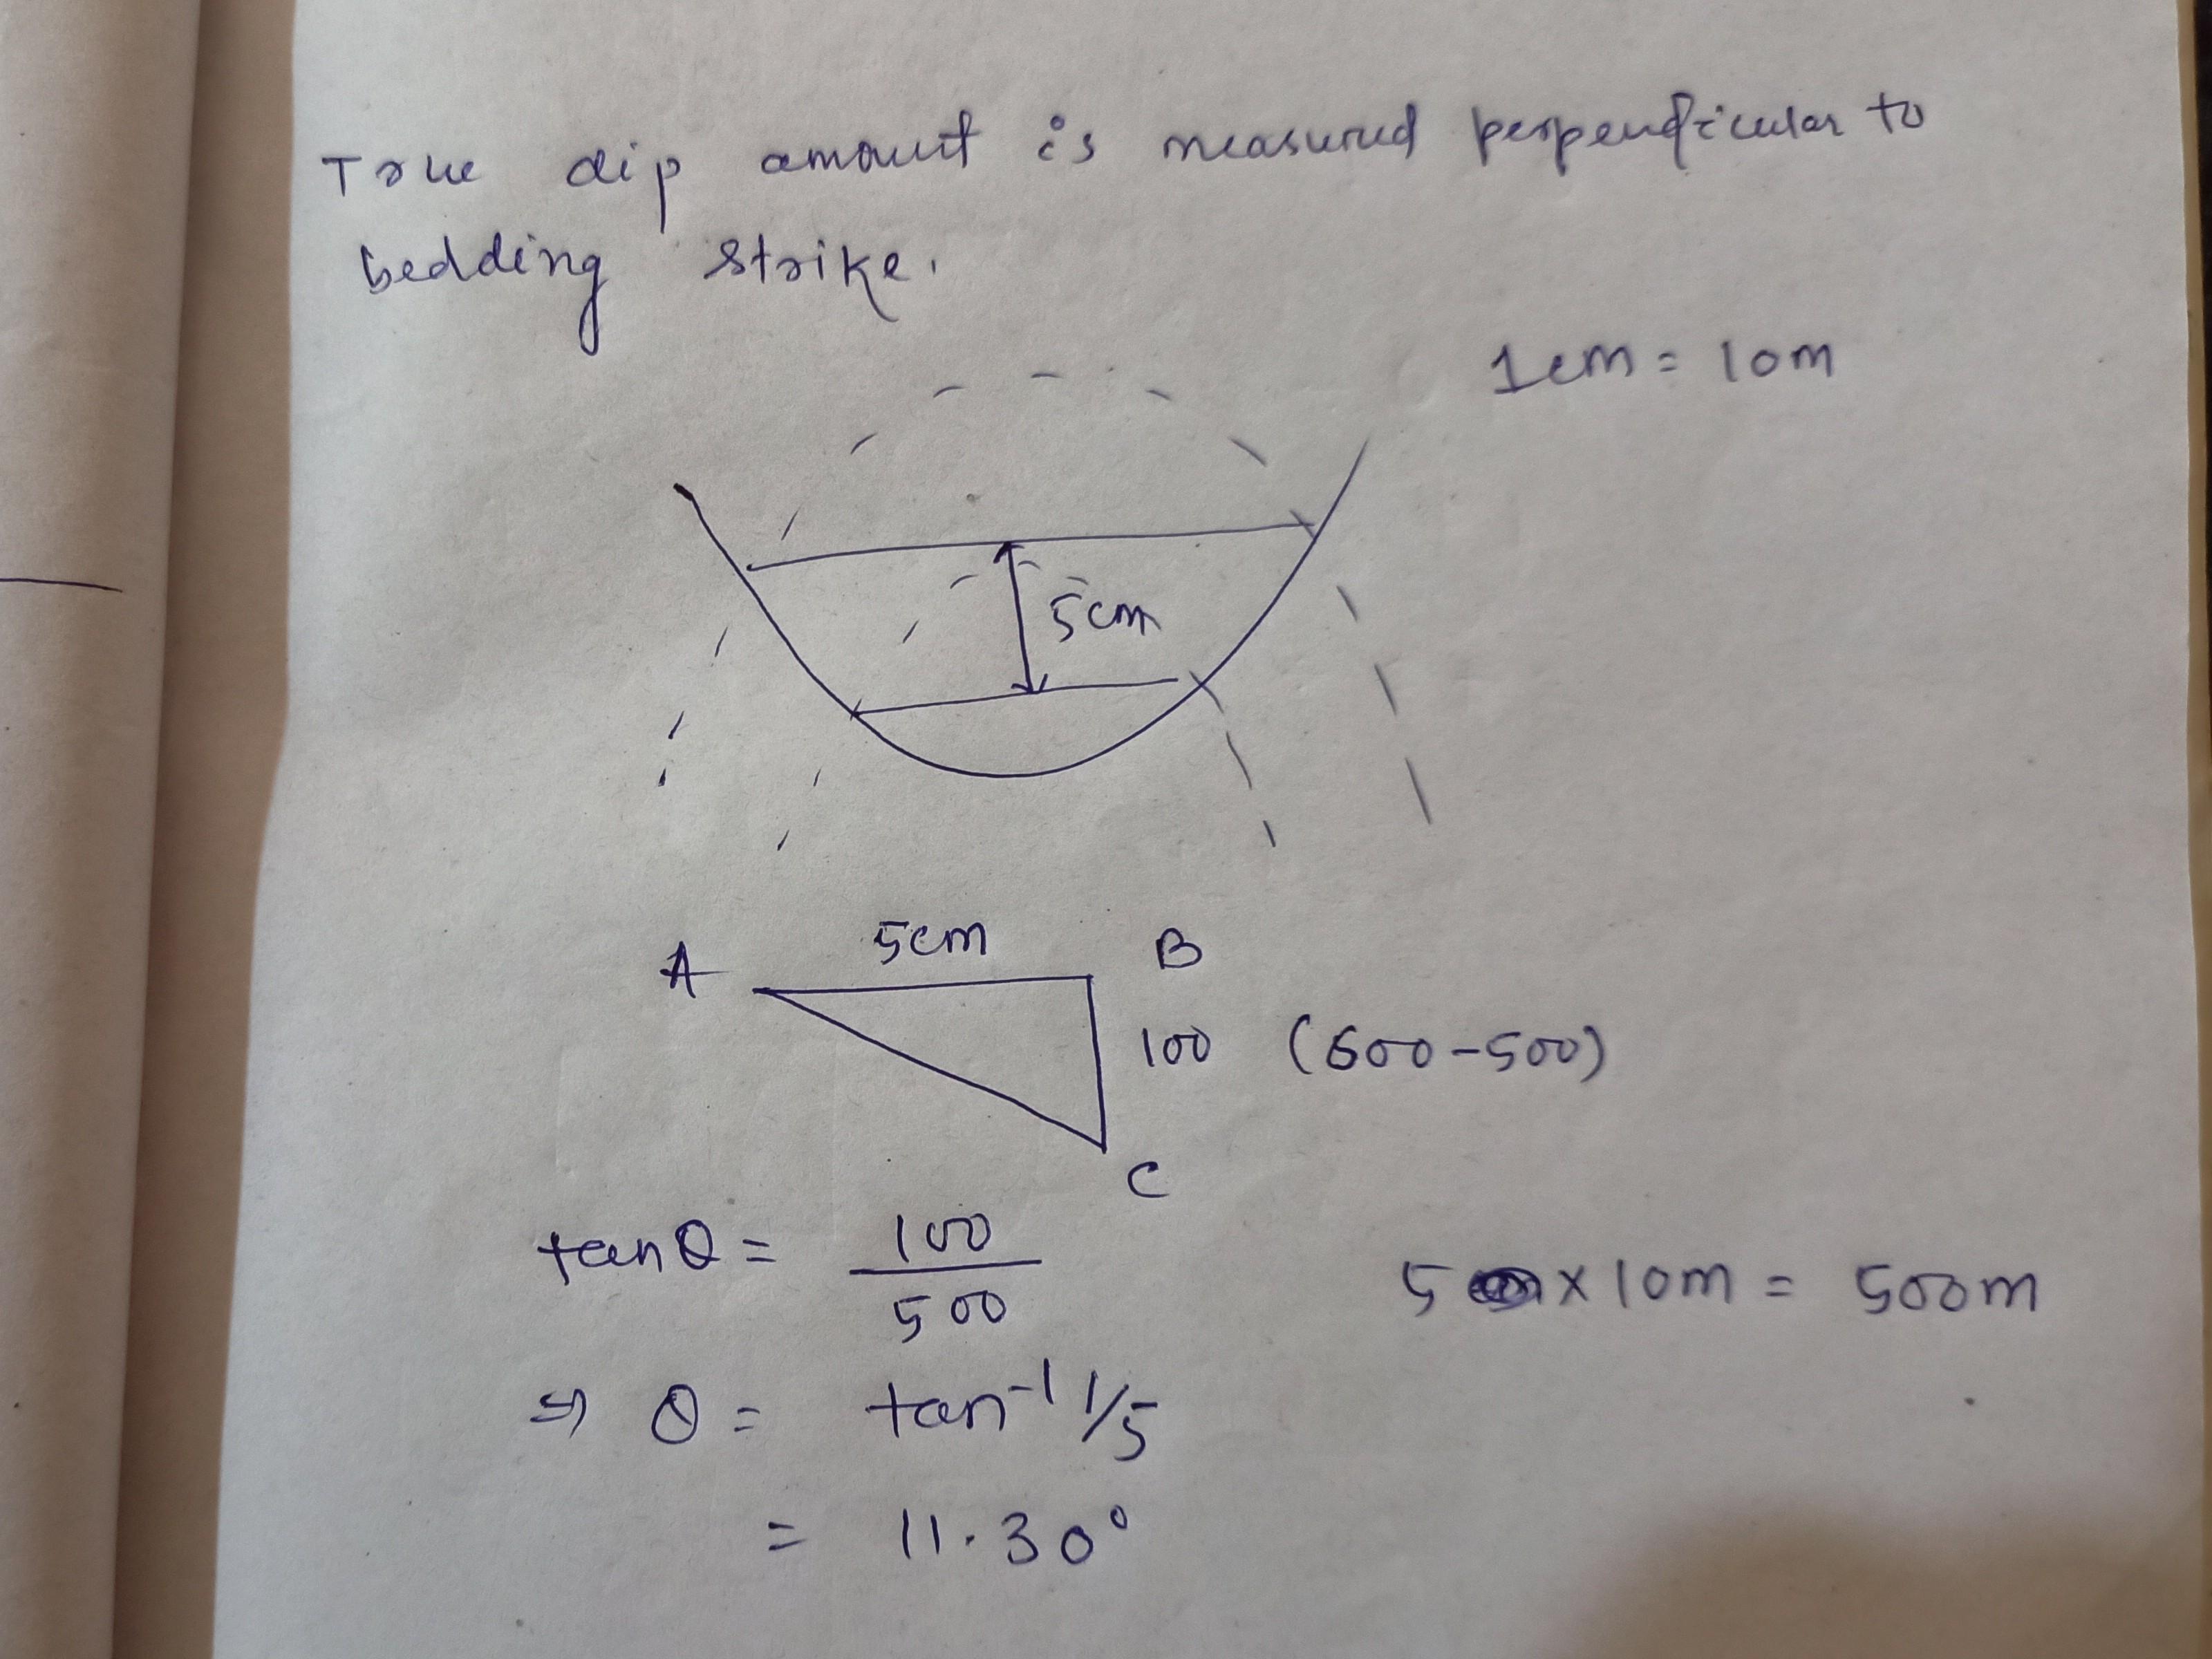 True dip amount is measured perpendicular to
bedding strike.
1cm = 10m
5cm
5cm
A B
100 (600-500)
C
tanθ = 100/500
5 x 10m = 500m
⇒ θ = tan⁻¹ 1/5
= 11.30°